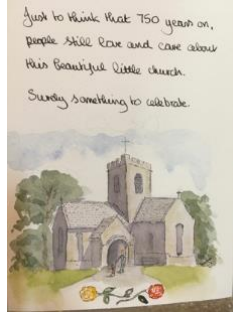 Just to think that 750 years on,
people still love and care about
this Beautiful little church.
Surely something to celebrate.